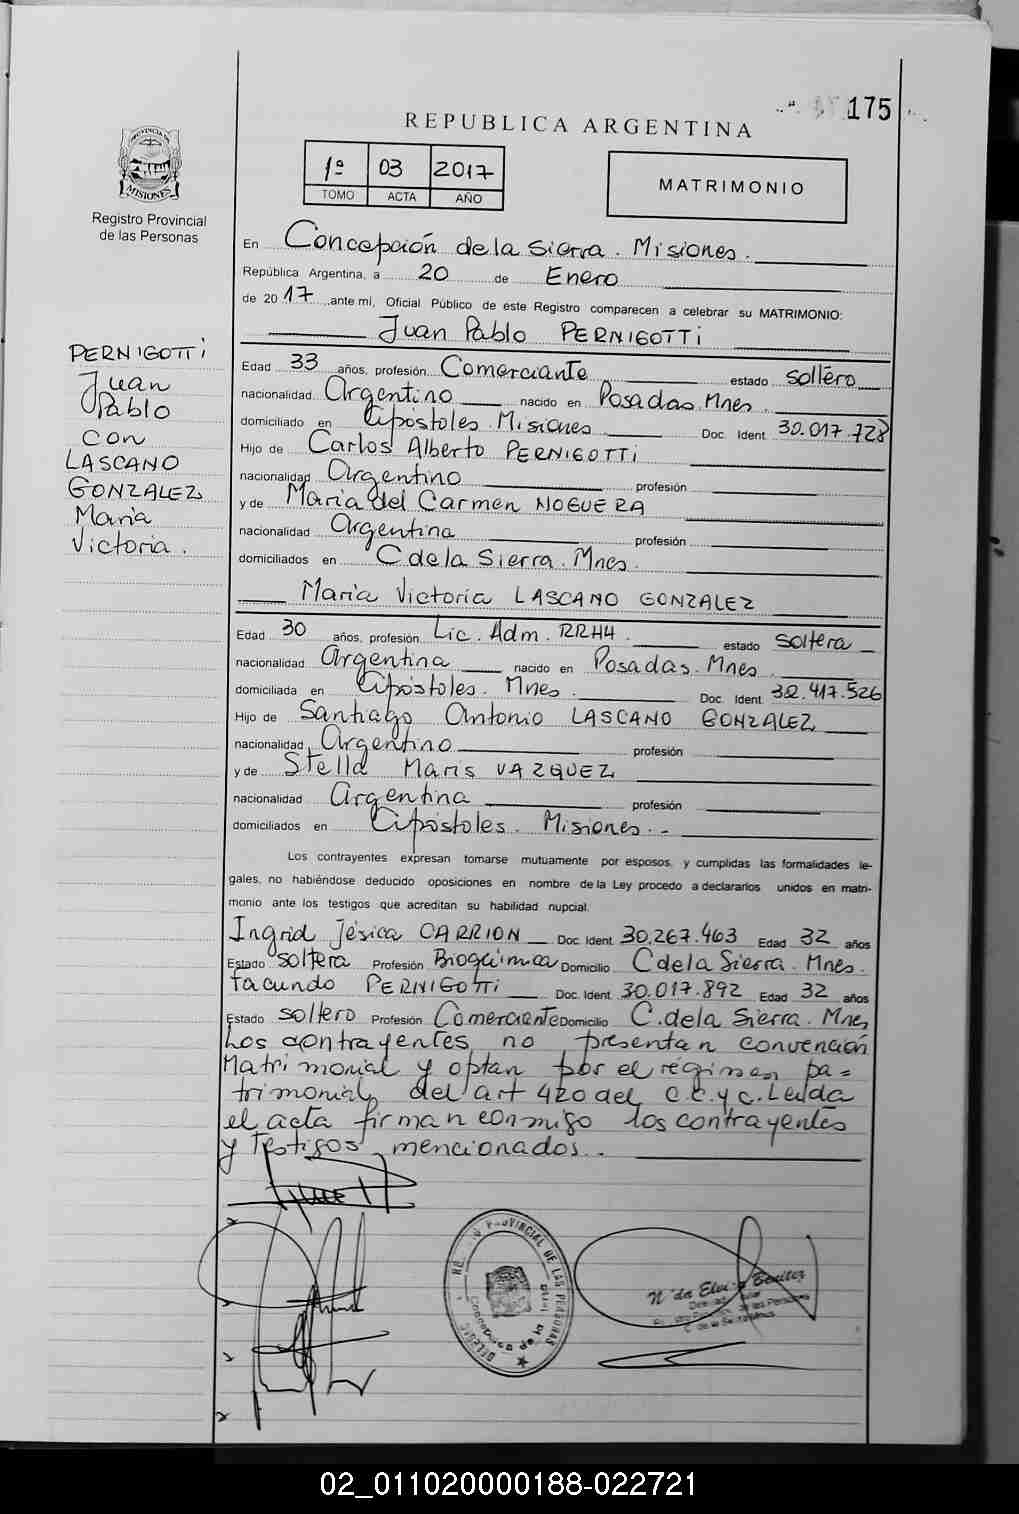 175
REPUBLICA ARGENTINA
1º 03 2017
TOMO ACTA AÑO
MATRIMONIO
PROVINCIA DE
MISIONES
Registro Provincial
de las Personas
En Concepción de la Sierra. Misiones.
República Argentina, a 20 de Enero
de 2017, ante mí, Oficial Público de este Registro comparecen a celebrar su MATRIMONIO:
Juan Pablo PERNIGOTTI
PERNIGOTTI
Juan
Pablo
con
LASCANO
GONZALEZ
Maria
Victoria.
Edad 33 años, profesión Comerciante estado soltero
nacionalidad Argentino nacido en Posadas. Mnes.
domiciliado en Apóstoles. Misiones. Doc. Ident. 30.017.728
Hijo de Carlos Alberto PERNIGOTTI
nacionalidad Argentino profesión
y de Maria del Carmen NOGUERA
nacionalidad Argentina profesión
domiciliados en C de la Sierra. Mnes.
Maria Victoria LASCANO GONZALEZ
Edad 30 años, profesión Lic. Adm. RRHH. estado soltera
nacionalidad Argentina nacido en Posadas. Mnes.
domiciliada en Apóstoles. Mnes. Doc. Ident. 32.417.526
Hijo de Santiago Antonio LASCANO GONZALEZ
nacionalidad Argentino profesión
y de Stella Maris VAZQUEZ
nacionalidad Argentina profesión
domiciliados en Apóstoles. Misiones.-
Los contrayentes expresan tomarse mutuamente por esposos, y cumplidas las formalidades le-
gales, no habiéndose deducido oposiciones en nombre de la Ley procedo a declararlos unidos en matri-
monio ante los testigos que acreditan su habilidad nupcial.
Ingrid Jésica CARRION Doc. Ident. 30.267.463 Edad 32 años
Estado soltera Profesión Bioquímica Domicilio C de la Sierra. Mnes.
Facundo PERNIGOTTI Doc. Ident. 30.017.892 Edad 32 años
Estado soltero Profesión Comerciante Domicilio C. de la Sierra. Mnes
Los contrayentes no presentan convención
Matrimonial y optan por el régimen pa=
trimonial del art 420 del C.C. y C. Leída
el acta firman conmigo los contrayentes
y testigos mencionados.-
PROVINCIAL DE LAS PERSONAS
Benitez
02_011020000188-022721